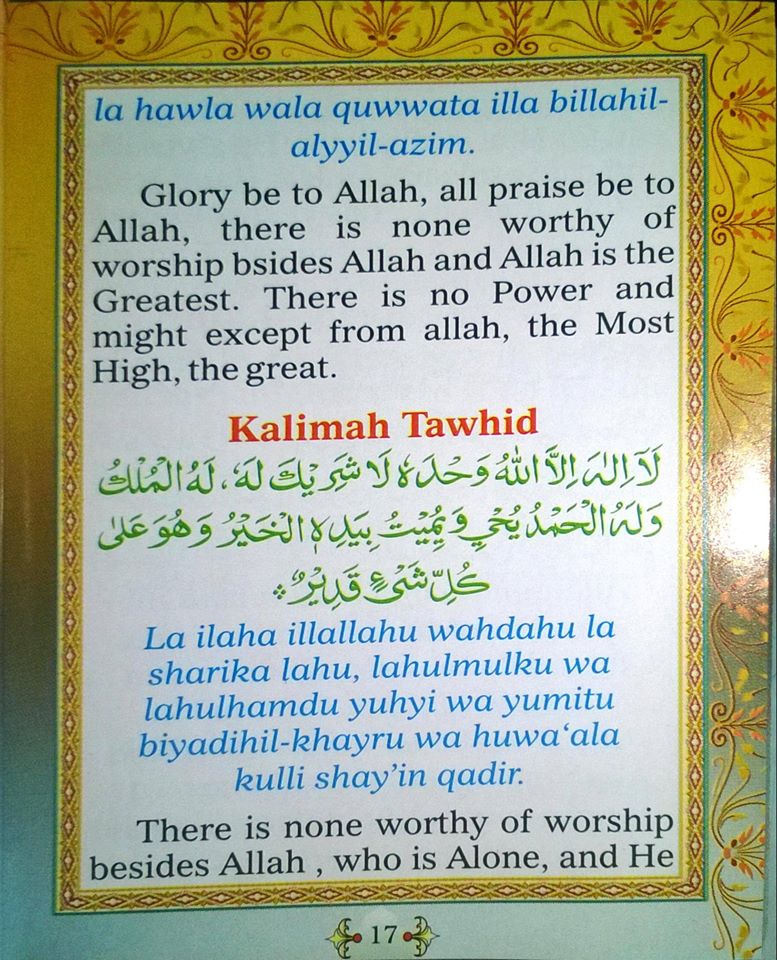 la hawla wala quwwata illa billahil-
alyyil-azim.
Glory be to Allah, all praise be to
Allah, there is none worthy of
worship bsides Allah and Allah is the
Greatest. There is no Power and
might except from allah, the Most
High, the great.
Kalimah Tawhid
لَآ اِلٰهَ اِلَّا اللّٰهُ وَحْدَهٗ لَا شَرِيْكَ لَهٗ، لَهُ الْمُلْكُ
وَلَهُ الْحَمْدُ يُحْيِ وَيُمِيْتُ بِيَدِهِ الْخَيْرُ وَهُوَ عَلٰى
كُلِّ شَيْءٍ قَدِيْرٌ
La ilaha illallahu wahdahu la
sharika lahu, lahulmulku wa
lahulhamdu yuhyi wa yumitu
biyadihil-khayru wa huwa‘ala
kulli shay’in qadir.
There is none worthy of worship
besides Allah , who is Alone, and He
17